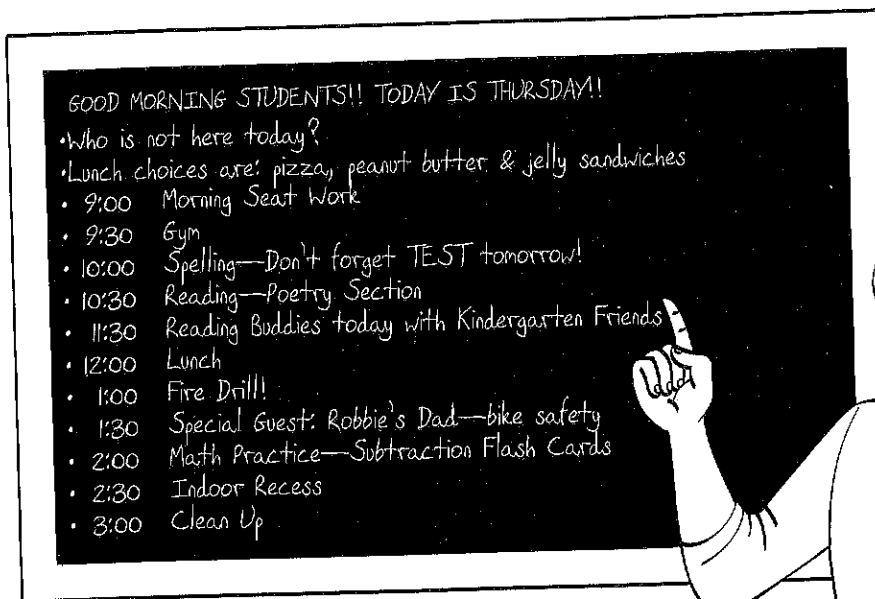 GOOD MORNING STUDENTS!! TODAY IS THURSDAY!!
•Who is not here today?
•Lunch choices are: pizza, peanut butter & jelly sandwiches
• 9:00 Morning Seat Work
• 9:30 Gym
• 10:00 Spelling—Don't forget TEST tomorrow!
• 10:30 Reading—Poetry Section
• 11:30 Reading Buddies today with Kindergarten Friends
• 12:00 Lunch
• 1:00 Fire Drill!
• 1:30 Special Guest: Robbie's Dad—bike safety
• 2:00 Math Practice—Subtraction Flash Cards
• 2:30 Indoor Recess
• 3:00 Clean Up